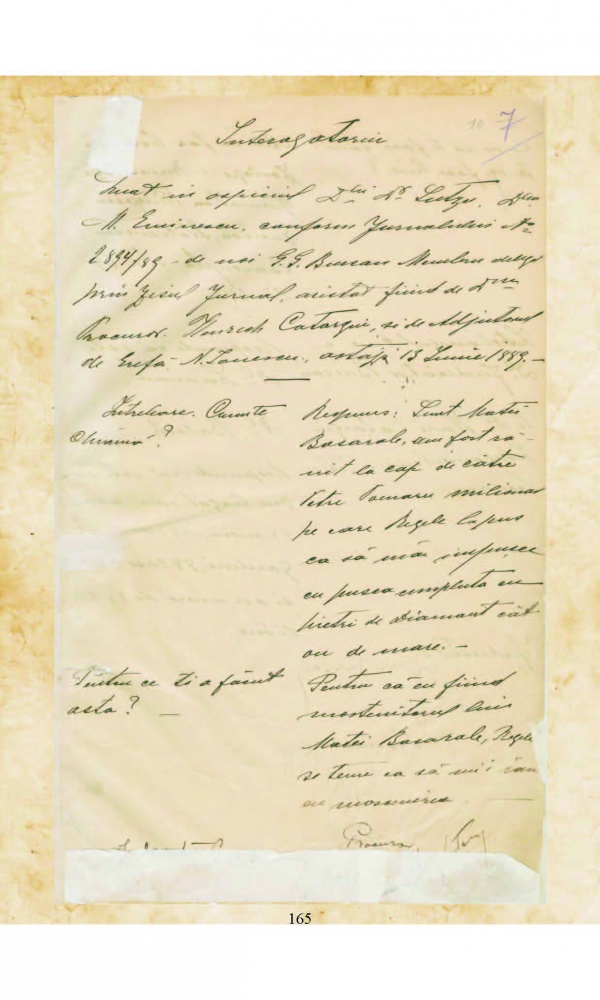 10 7
Interogatoriu
Luat in ospiciul D-lui Dr Șuțzu, D-lui
M. Eminescu, conform Jurnalului No
2894/89 de noi G. G. Bursan Membru delegat
prin zisul Jurnal, asistat fiind de D-nu
Procuror Catargiu, si de Adjutorul
de Grefă N. Ionescu, astăzi 13 Iunie 1889. —
Întrebare. Cum te
chiamă?
Respuns: Sunt Matei
Basarab, am fost ră-
nit la cap de către
Petre Poenaru milionar
pe care Regele l'a pus
ca să mă impusce
cu pusca umpluta cu
pietri de diamant cât
ou de mare. —
Pentru ce ti a făcut
asta? —
Pentru că eu fiind
mostenitorul lui
Matei Basarab, Regele
se teme ca să nu i iau
eu mostenirea —
Procuror
165